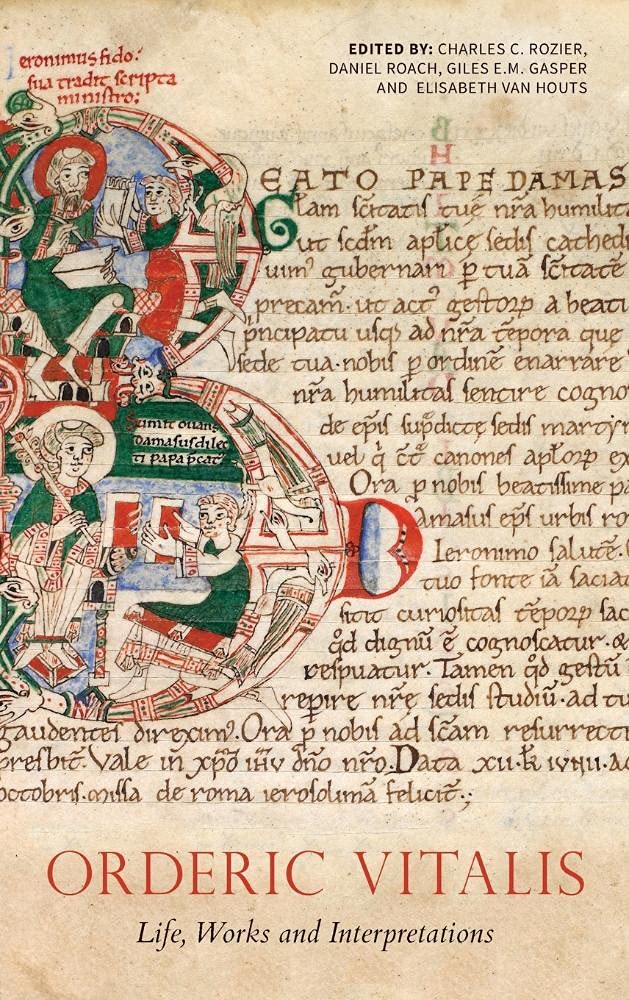 EDITED BY: CHARLES C. ROZIER,
DANIEL ROACH, GILES E.M. GASPER
AND ELISABETH VAN HOUTS
eronimus fido:
sua tradit scripta
ministro;
EATO PAPE DAMAS
Glam sc̄itatis tuę nr̄a humilita
ut scdm aplicę sedis cathedr
gubernari p tuā sc̄itatē
precam̄. ut act᷒ gestoꝝ a beati
principatu usq; ad nr̄a tēpora que
sede tua. nobis p ordinē enarrare
nr̄a humilitas sentire cogno
de ep̄is sup̄dictę sedis martyr
uel q̄ cōt̄ canones ap̄loꝝ ex
Ora p nobis beatissime pa
Damasus ep̄s urbis ro
Ieronimo salutē.
tuo fonte iā saciat
sitit curiositas tēpoꝝ sac
qd dignū ē cognoscatur. &
respuatur. Tamen qd gestū
repire nr̄ę sedis studiū. ad tu
sumit ouans
damasus dilec
ti papa pcat᷒
gaudentes direxim᷒. Ora p nobis ad sc̄am resurrecti
presbit̄. Vale in xp̄o ih̄u dn̄o nr̄o. Data xii. k̄ iunii. ac
octobris. missa de roma ierosolimā felicit̄.;
ORDERIC VITALIS
Life, Works and Interpretations